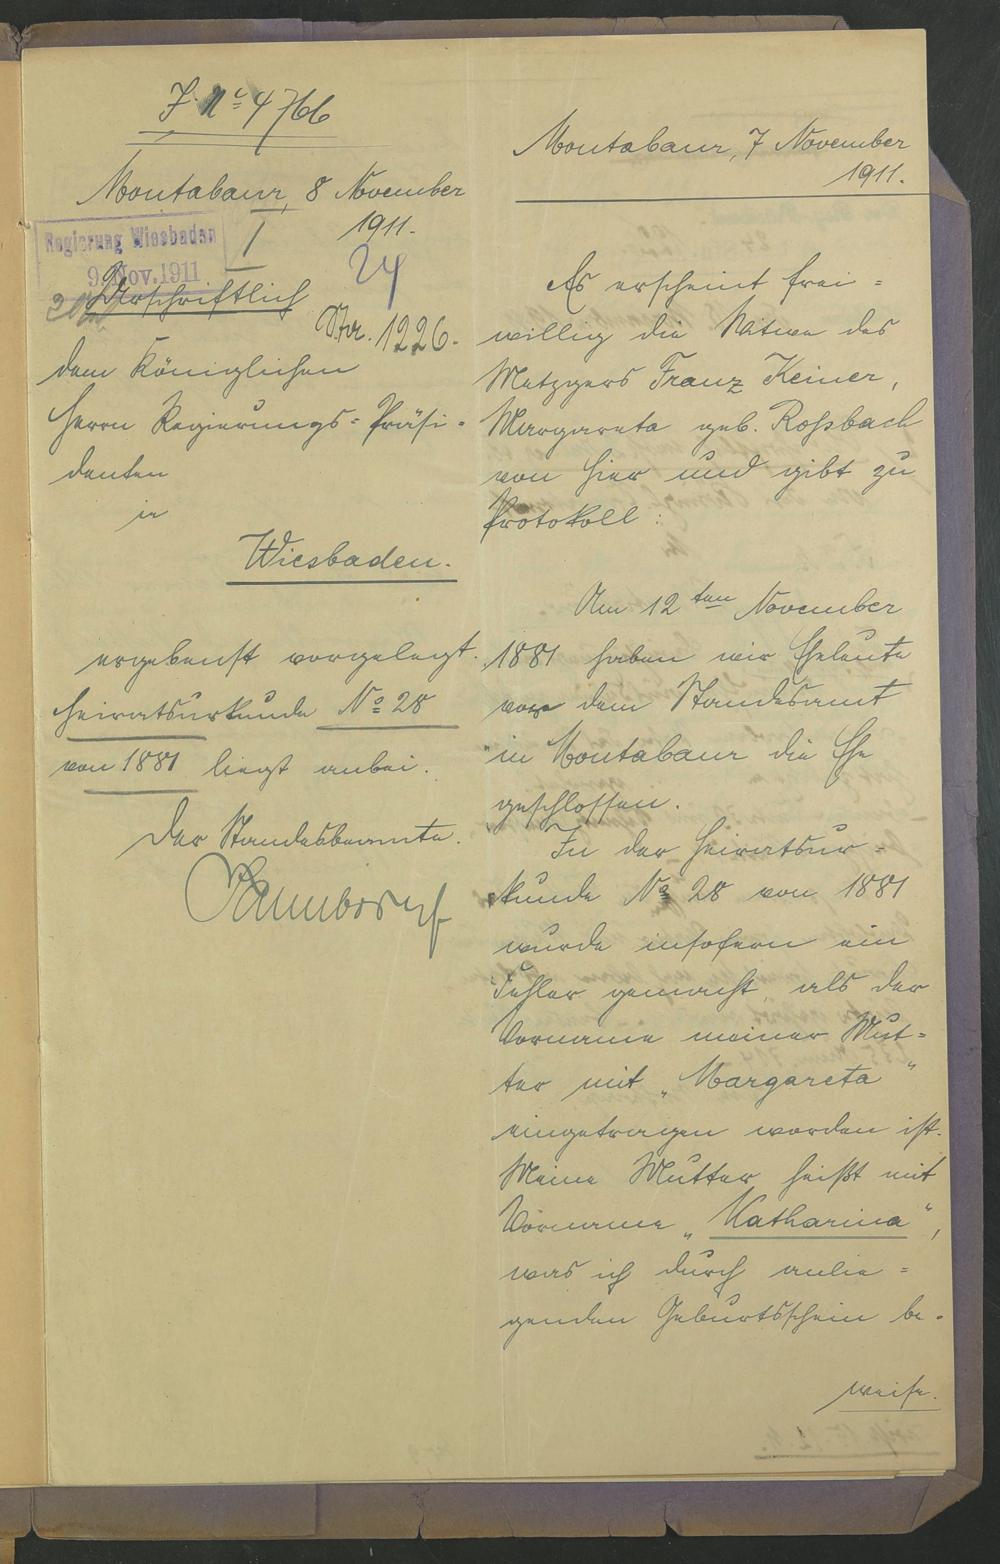 J. No 4766
Montabaur, 8 November
1911.
Regierung Wiesbaden
9. Nov. 1911
I
24
Urschriftlich
Nr. 1226.
dem Königlichen
Herrn Regierungs-Präsi-
denten
in
Wiesbaden.
ergebenst vorgelegt.
Heiratsurkunde No 28
von 1881 liegt anbei.
Der Standesbeamte.
Montabaur, 7 November
1911.
Es erscheint frei-
willig die Witwe des
Metzgers Franz Keiner,
Margareta geb. Roßbach
von hier und gibt zu
Protokoll:
Am 12ten November
1881 haben wir Eheleute
vor dem Standesamt
in Montabaur die Ehe
geschlossen.
In der Heiratsur-
kunde No 28 von 1881
wurde insofern ein
Fehler gemacht, als der
Vorname meiner Mut-
ter mit „Margareta“
eingetragen worden ist.
Meine Mutter heißt mit
Vorname „Katharina“,
was ich durch anlie-
genden Geburtsschein be-
weise.